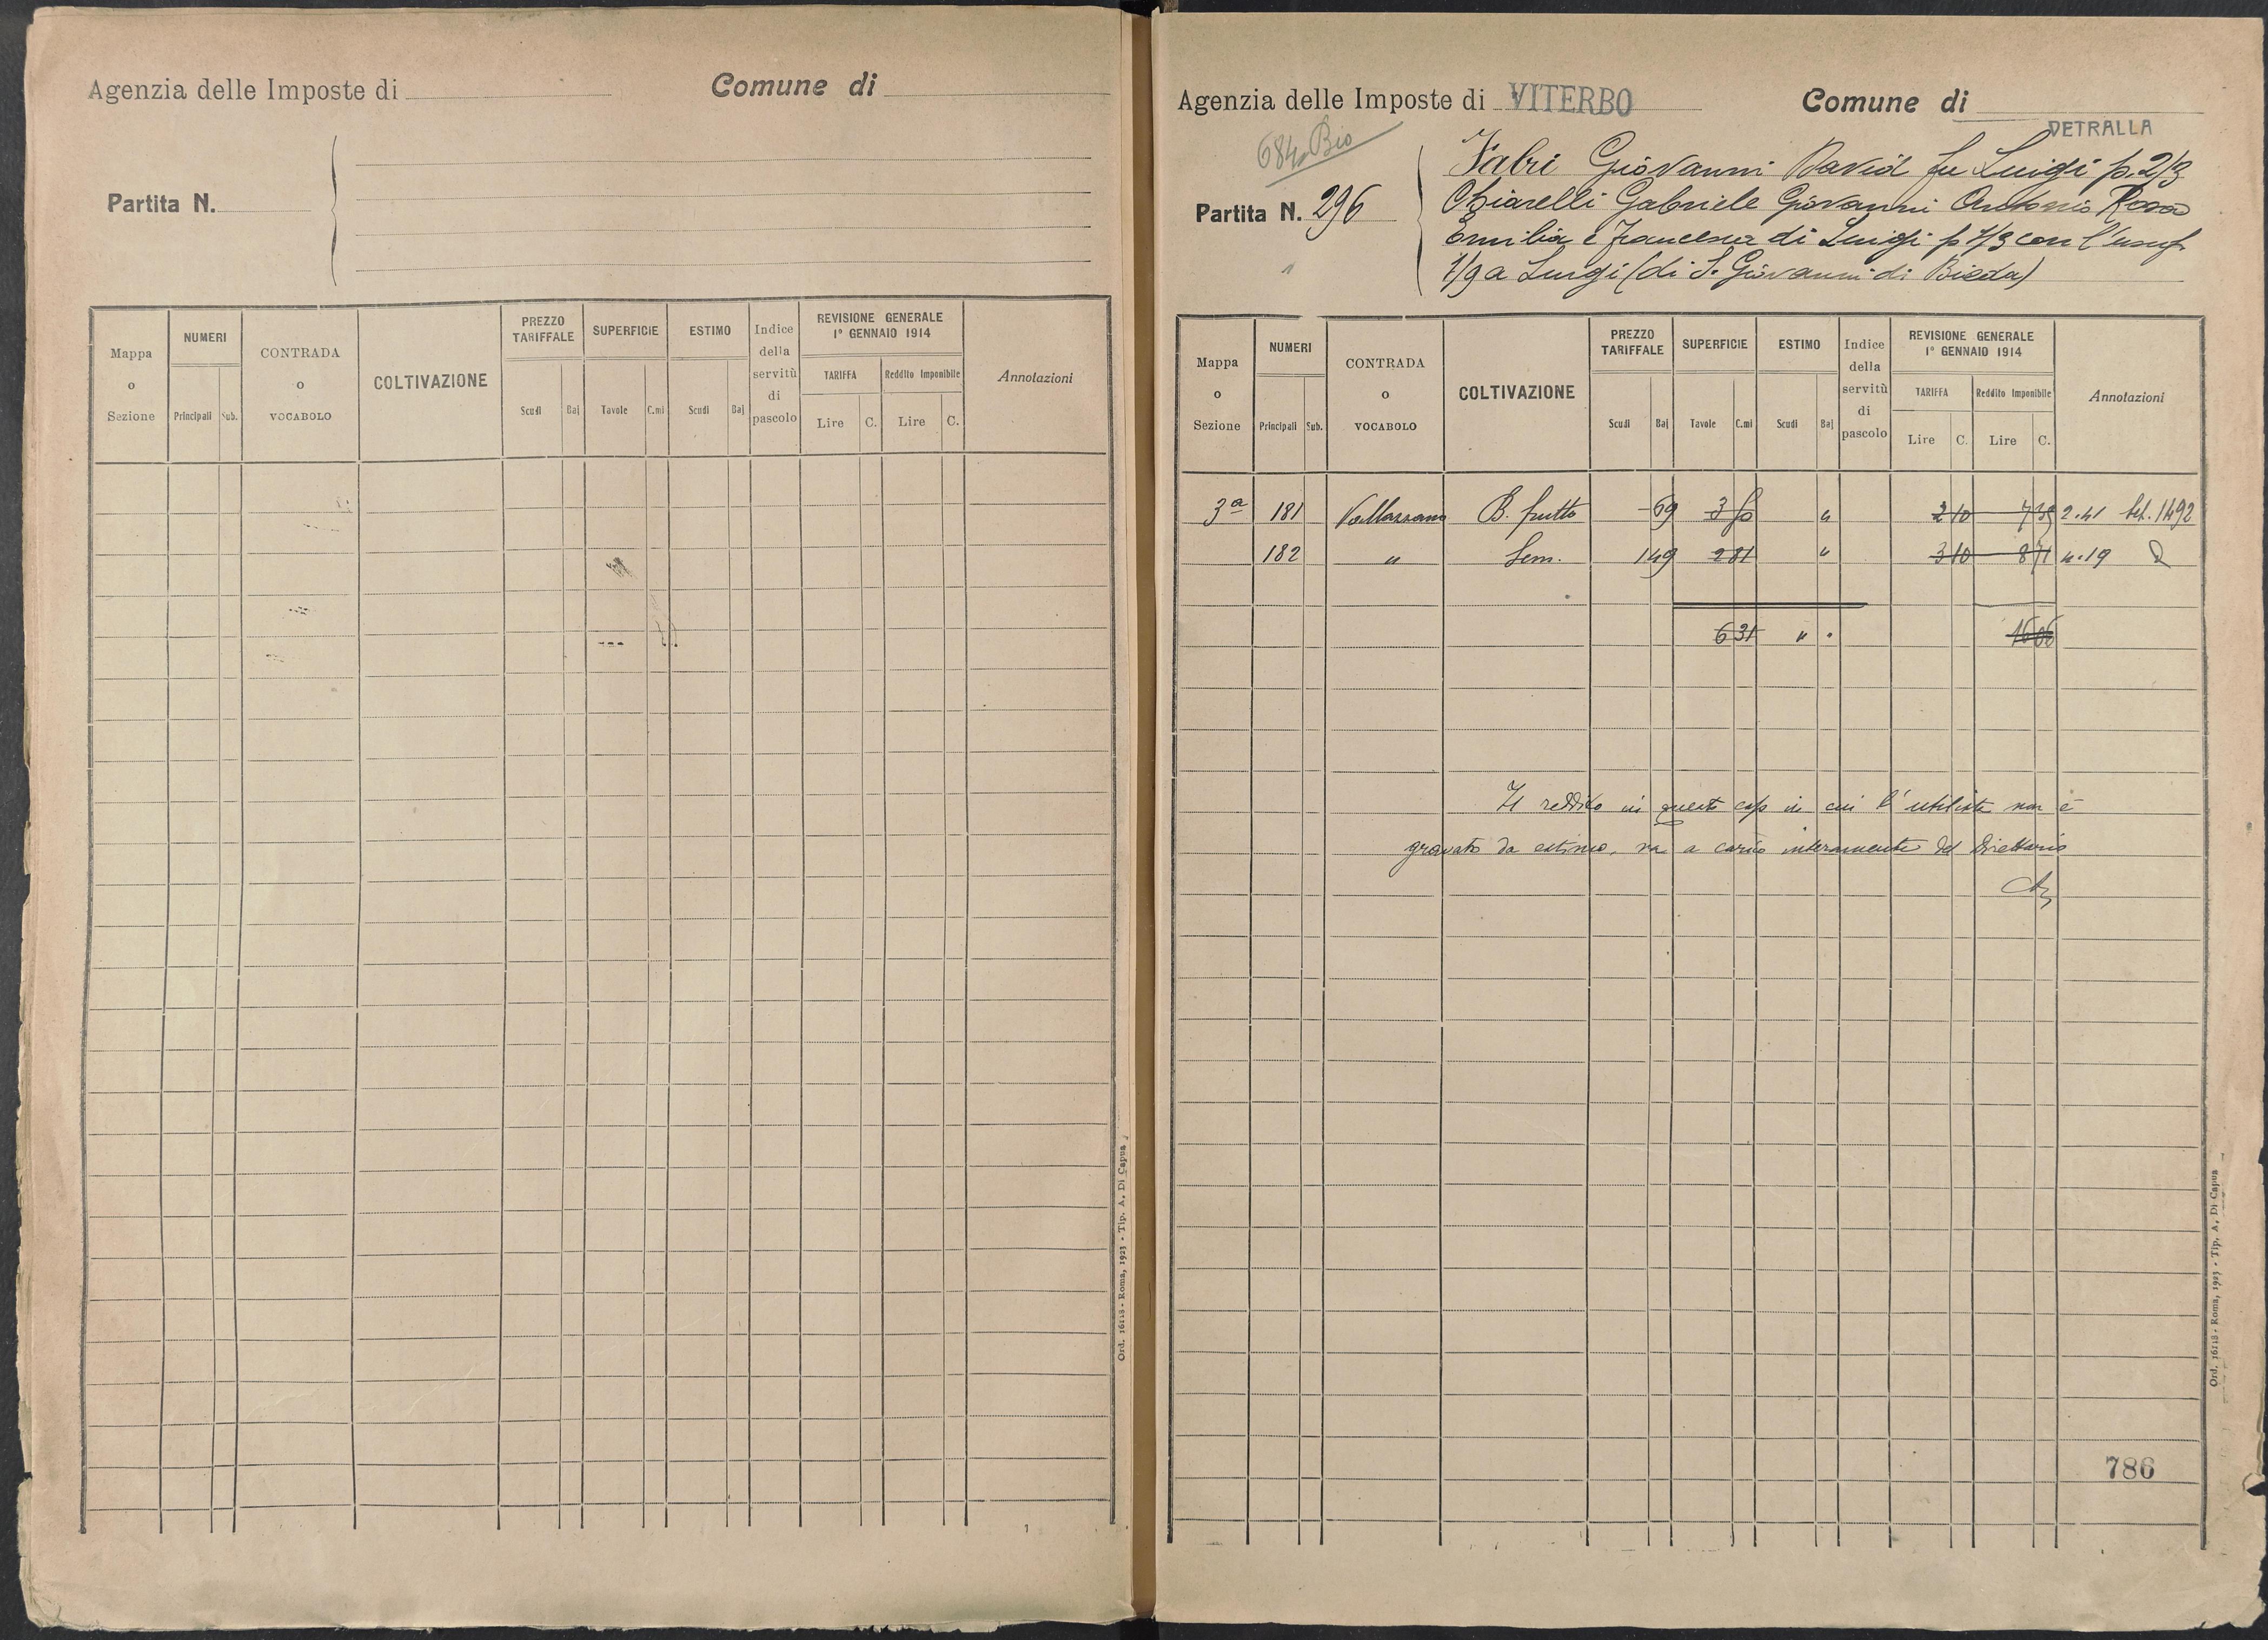 Agenzia delle Imposte di
Comune di
Partita N.
Mappa o Sezione
NUMERI
Principali Sub.
CONTRADA o VOCABOLO
COLTIVAZIONE
PREZZO TARIFFALE
Scudi Baj
SUPERFICIE
Tavole C.mi
ESTIMO
Scudi Baj
Indice della servitù di pascolo
REVISIONE GENERALE
1° GENNAIO 1914
TARIFFA Reddito Imponibile
Lire C. Lire C.
Annotazioni
Ord. 16118 - Roma, 1923 - Tip. A. Di Capua
Agenzia delle Imposte di VITERBO
Comune di
VETRALLA
684 Bio
Partita N. 296
Fabri Giovanni David fu Luigi p. 2/3
Chiarelli Gabriele Giovanni Antonio Rosa
Emilia e Francesca di Luigi p 1/3 con l'usuf
1/9 a Luigi (di S. Giovanni di Bieda)
Mappa o Sezione
NUMERI
Principali Sub.
CONTRADA o VOCABOLO
COLTIVAZIONE
PREZZO TARIFFALE
Scudi Baj
SUPERFICIE
Tavole C.mi
ESTIMO
Scudi Baj
Indice della servitù di pascolo
REVISIONE GENERALE
1° GENNAIO 1914
TARIFFA Reddito Imponibile
Lire C. Lire C.
Annotazioni
3a 181 B. frutto 69 3 50 " 2 10 7 35 2.41 1492
182 " Sem. 1 49 2 81 " 3 10 8 71 4.19
6 31 " " 16 06
Il reddito in questo caso in cui l'utilista non è
gravato da estimo, va a carico interamente del Direttario
786
Ord. 16118 - Roma, 1923 - Tip. A. Di Capua